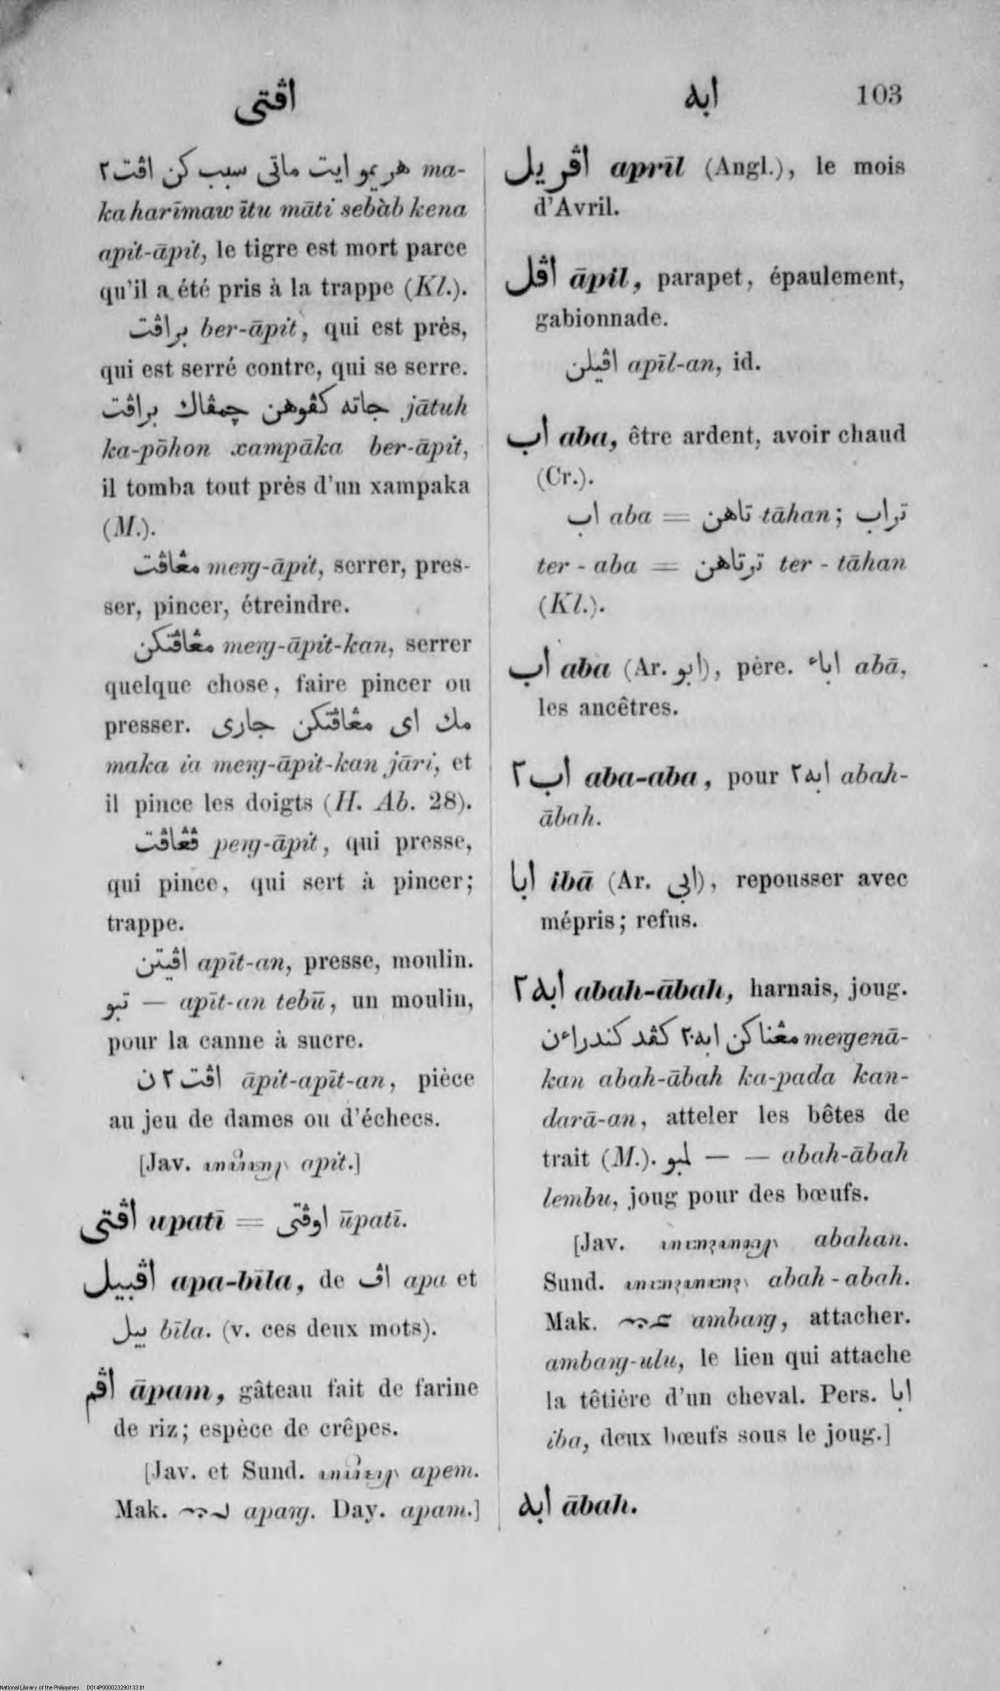 اڤتى
ابه 103
هريمو ايت ماتى سبب كن اڤت٢ ma-
ka harīmaw ītu māti sebàb kena
apit-āpit, le tigre est mort parce
qu'il a été pris à la trappe (Kl.).
براڤت ber-āpit, qui est près,
qui est serré contre, qui se serre.
جاته كڤوهن چمڤاك براڤت jātuh
ka-pōhon xampāka ber-āpit,
il tomba tout près d'un xampaka
(M.).
مڠاڤت meng-āpit, serrer, pres-
ser, pincer, étreindre.
مڠاڤتكن meng-āpit-kan, serrer
quelque chose, faire pincer ou
presser. مك اى مڠاڤتكن جارى
maka ia meng-āpit-kan jāri, et
il pince les doigts (H. Ab. 28).
ڤڠاڤت peng-āpit, qui presse,
qui pince, qui sert à pincer;
trappe.
اڤيتن apīt-an, presse, moulin.
تبو — apīt-an tebū, un moulin,
pour la canne à sucre.
اڤت ٢ ن āpit-apīt-an, pièce
au jeu de dames ou d'échecs.
[Jav. apit.]
اڤتى upatī = اوڤتى ūpatī.
اڤبيل apa-bīla, de اڤ apa et
بيل bīla. (v. ces deux mots).
اڤم āpam, gâteau fait de farine
de riz; espèce de crêpes.
[Jav. et Sund. apem.
Mak. apang. Day. apam.]
اڤريل aprīl (Angl.), le mois
d'Avril.
اڤل āpil, parapet, épaulement,
gabionnade.
اڤيلن apīl-an, id.
اب aba, être ardent, avoir chaud
(Cr.).
اب aba = تاهن tāhan; تراب
ter-aba = ترتاهن ter-tāhan
(Kl.).
اب aba (Ar. ابو), père. اباء abā,
les ancêtres.
اب ٢ aba-aba, pour ابه٢ abah-
ābah.
ابا ibā (Ar. ابى), repousser avec
mépris; refus.
ابه٢ abah-ābah, harnais, joug.
مڠناكن ابه٢ كڤد كندراءن mengenā-
kan abah-ābah ka-pada kan-
darā-an, atteler les bêtes de
trait (M.). لمبو — — abah-ābah
lembu, joug pour des bœufs.
[Jav. abahan.
Sund. abah-abah.
Mak. ambang, attacher.
ambang-ulu, le lien qui attache
la têtière d'un cheval. Pers. ابا
iba, deux bœufs sous le joug.]
ابه ābah.
National Library of the Philippines